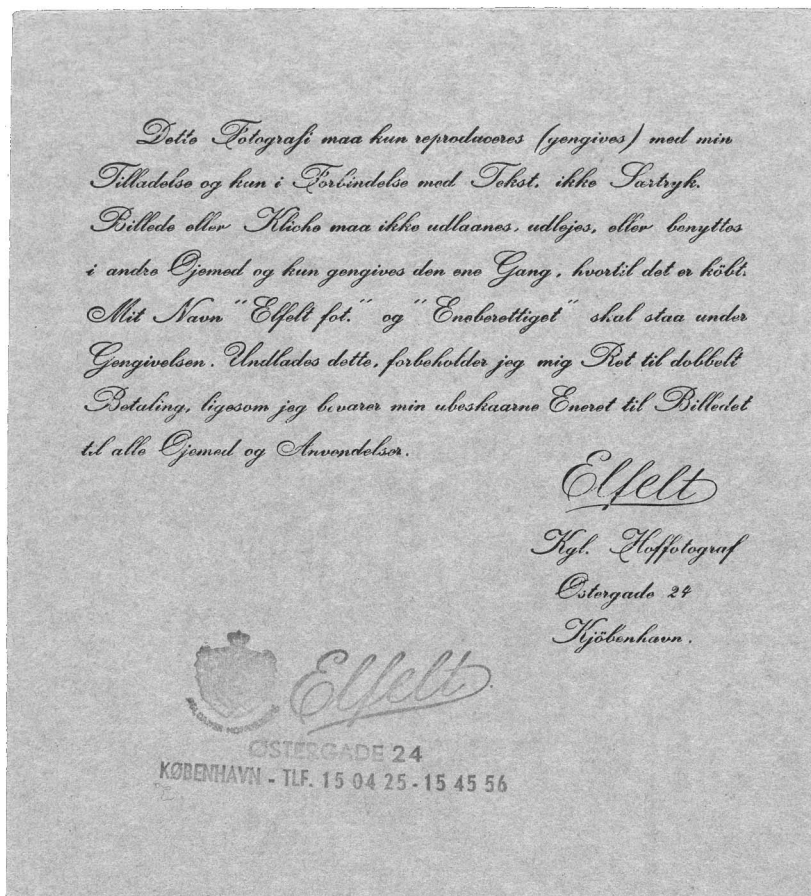 Dette Fotografi maa kun reproduceres (gengives) med min
Tilladelse og kun i Forbindelse med Tekst, ikke Særtryk.
Billede eller Kliche maa ikke udlaanes, udlejes, eller benyttes
i andre Öjemed og kun gengives den ene Gang, hvortil det er köbt.
Mit Navn "Elfelt fot." og "Eneberettiget" skal staa under
Gengivelsen. Undlades dette, forbeholder jeg mig Ret til dobbelt
Betaling, ligesom jeg bevarer min ubeskaarne Eneret til Billedet
til alle Öjemed og Anvendelser.
Elfelt
Kgl. Hoffotograf
Östergade 24
Kjöbenhavn.
Elfelt
ØSTERGADE 24
KØBENHAVN - TLF. 15 04 25 - 15 45 56